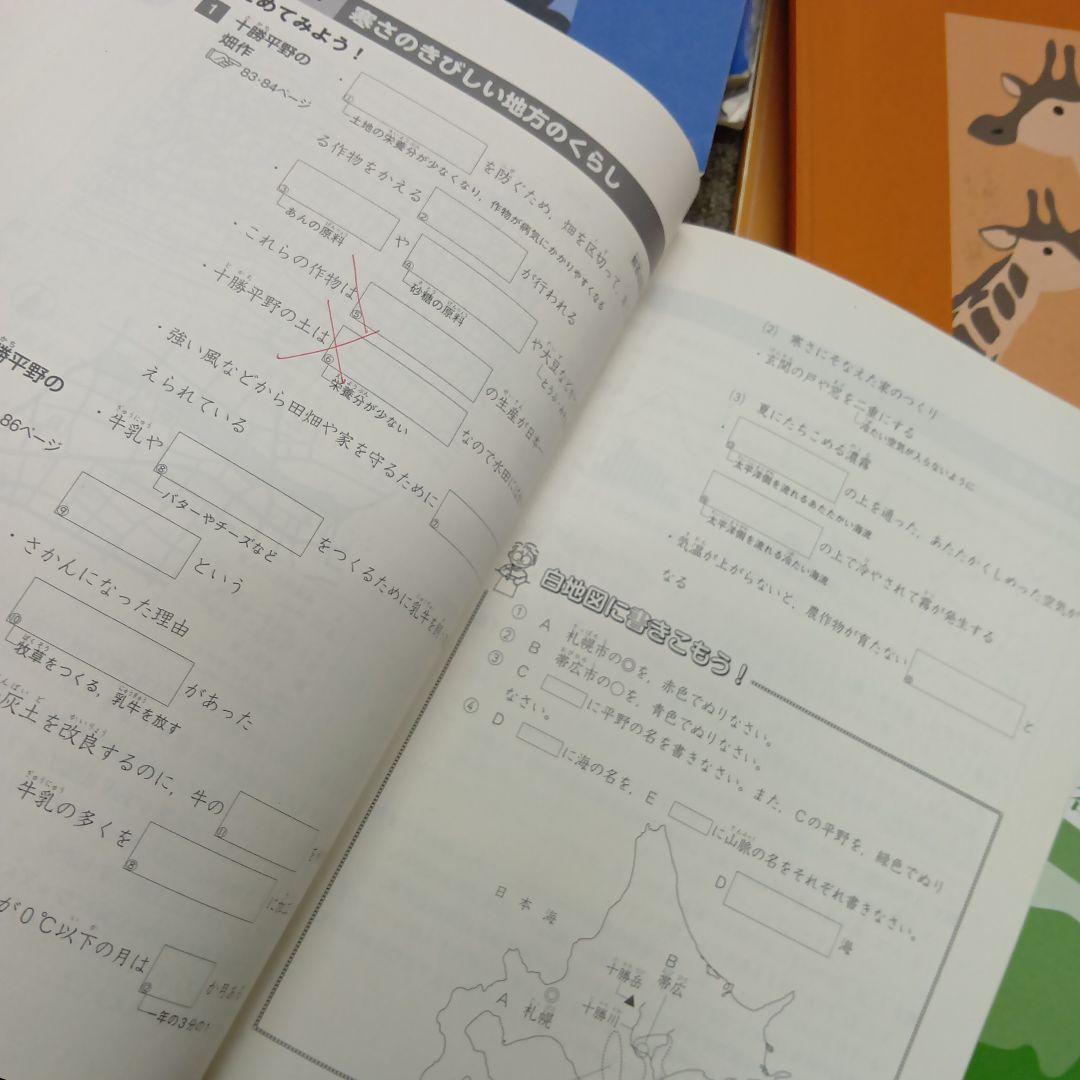 寒さのきびしい地方のくらし
とめてみよう！
1 十勝平野の
畑作
83・84ページ
・①を防ぐため，畑を区切って，
土地の栄養分が少なくなり，作物が病気にかかりやすくなる
る作物をかえる②が行われる
・③や④や大豆など
あんの原料
砂糖の原料
・これらの作物は⑤の生産が日本一
・十勝平野の土は⑥なので水田には
栄養分が少ない
・強い風などから田畑や家を守るために⑦
えられている
勝平野の
86ページ
・牛乳や⑧をつくるために乳牛を
バターやチーズなど
⑨という
・さかんになった理由
⑩があった
牧草をつくる，乳牛を放す
灰土を改良するのに，牛の⑪
牛乳の多くを⑧
が0℃以下の月は⑫か月
一年の3分の1
(2) 寒さにそなえた家のつくり
・玄関の戸や窓を二重にする
冷たい空気が入らないように
(3) 夏にたちこめる濃霧
の上を通った，あたたかくしめった空気が
太平洋側を流れるあたたかい海流
の上で冷やされて霧が発生する
太平洋側を流れる冷たい海流
・気温が上がらないと，農作物が育たないと
なる
白地図に書きこもう！
① A 札幌市の◎を，赤色でぬりなさい。
② B 帯広市の○を，青色でぬりなさい。
③ C に平野の名を書きなさい。また，Cの平野を，緑色でぬり
なさい。
④ D に海の名を，E に山脈の名をそれぞれ書きなさい。
D 海
日本海
B
十勝岳 帯広
A
札幌
十勝川